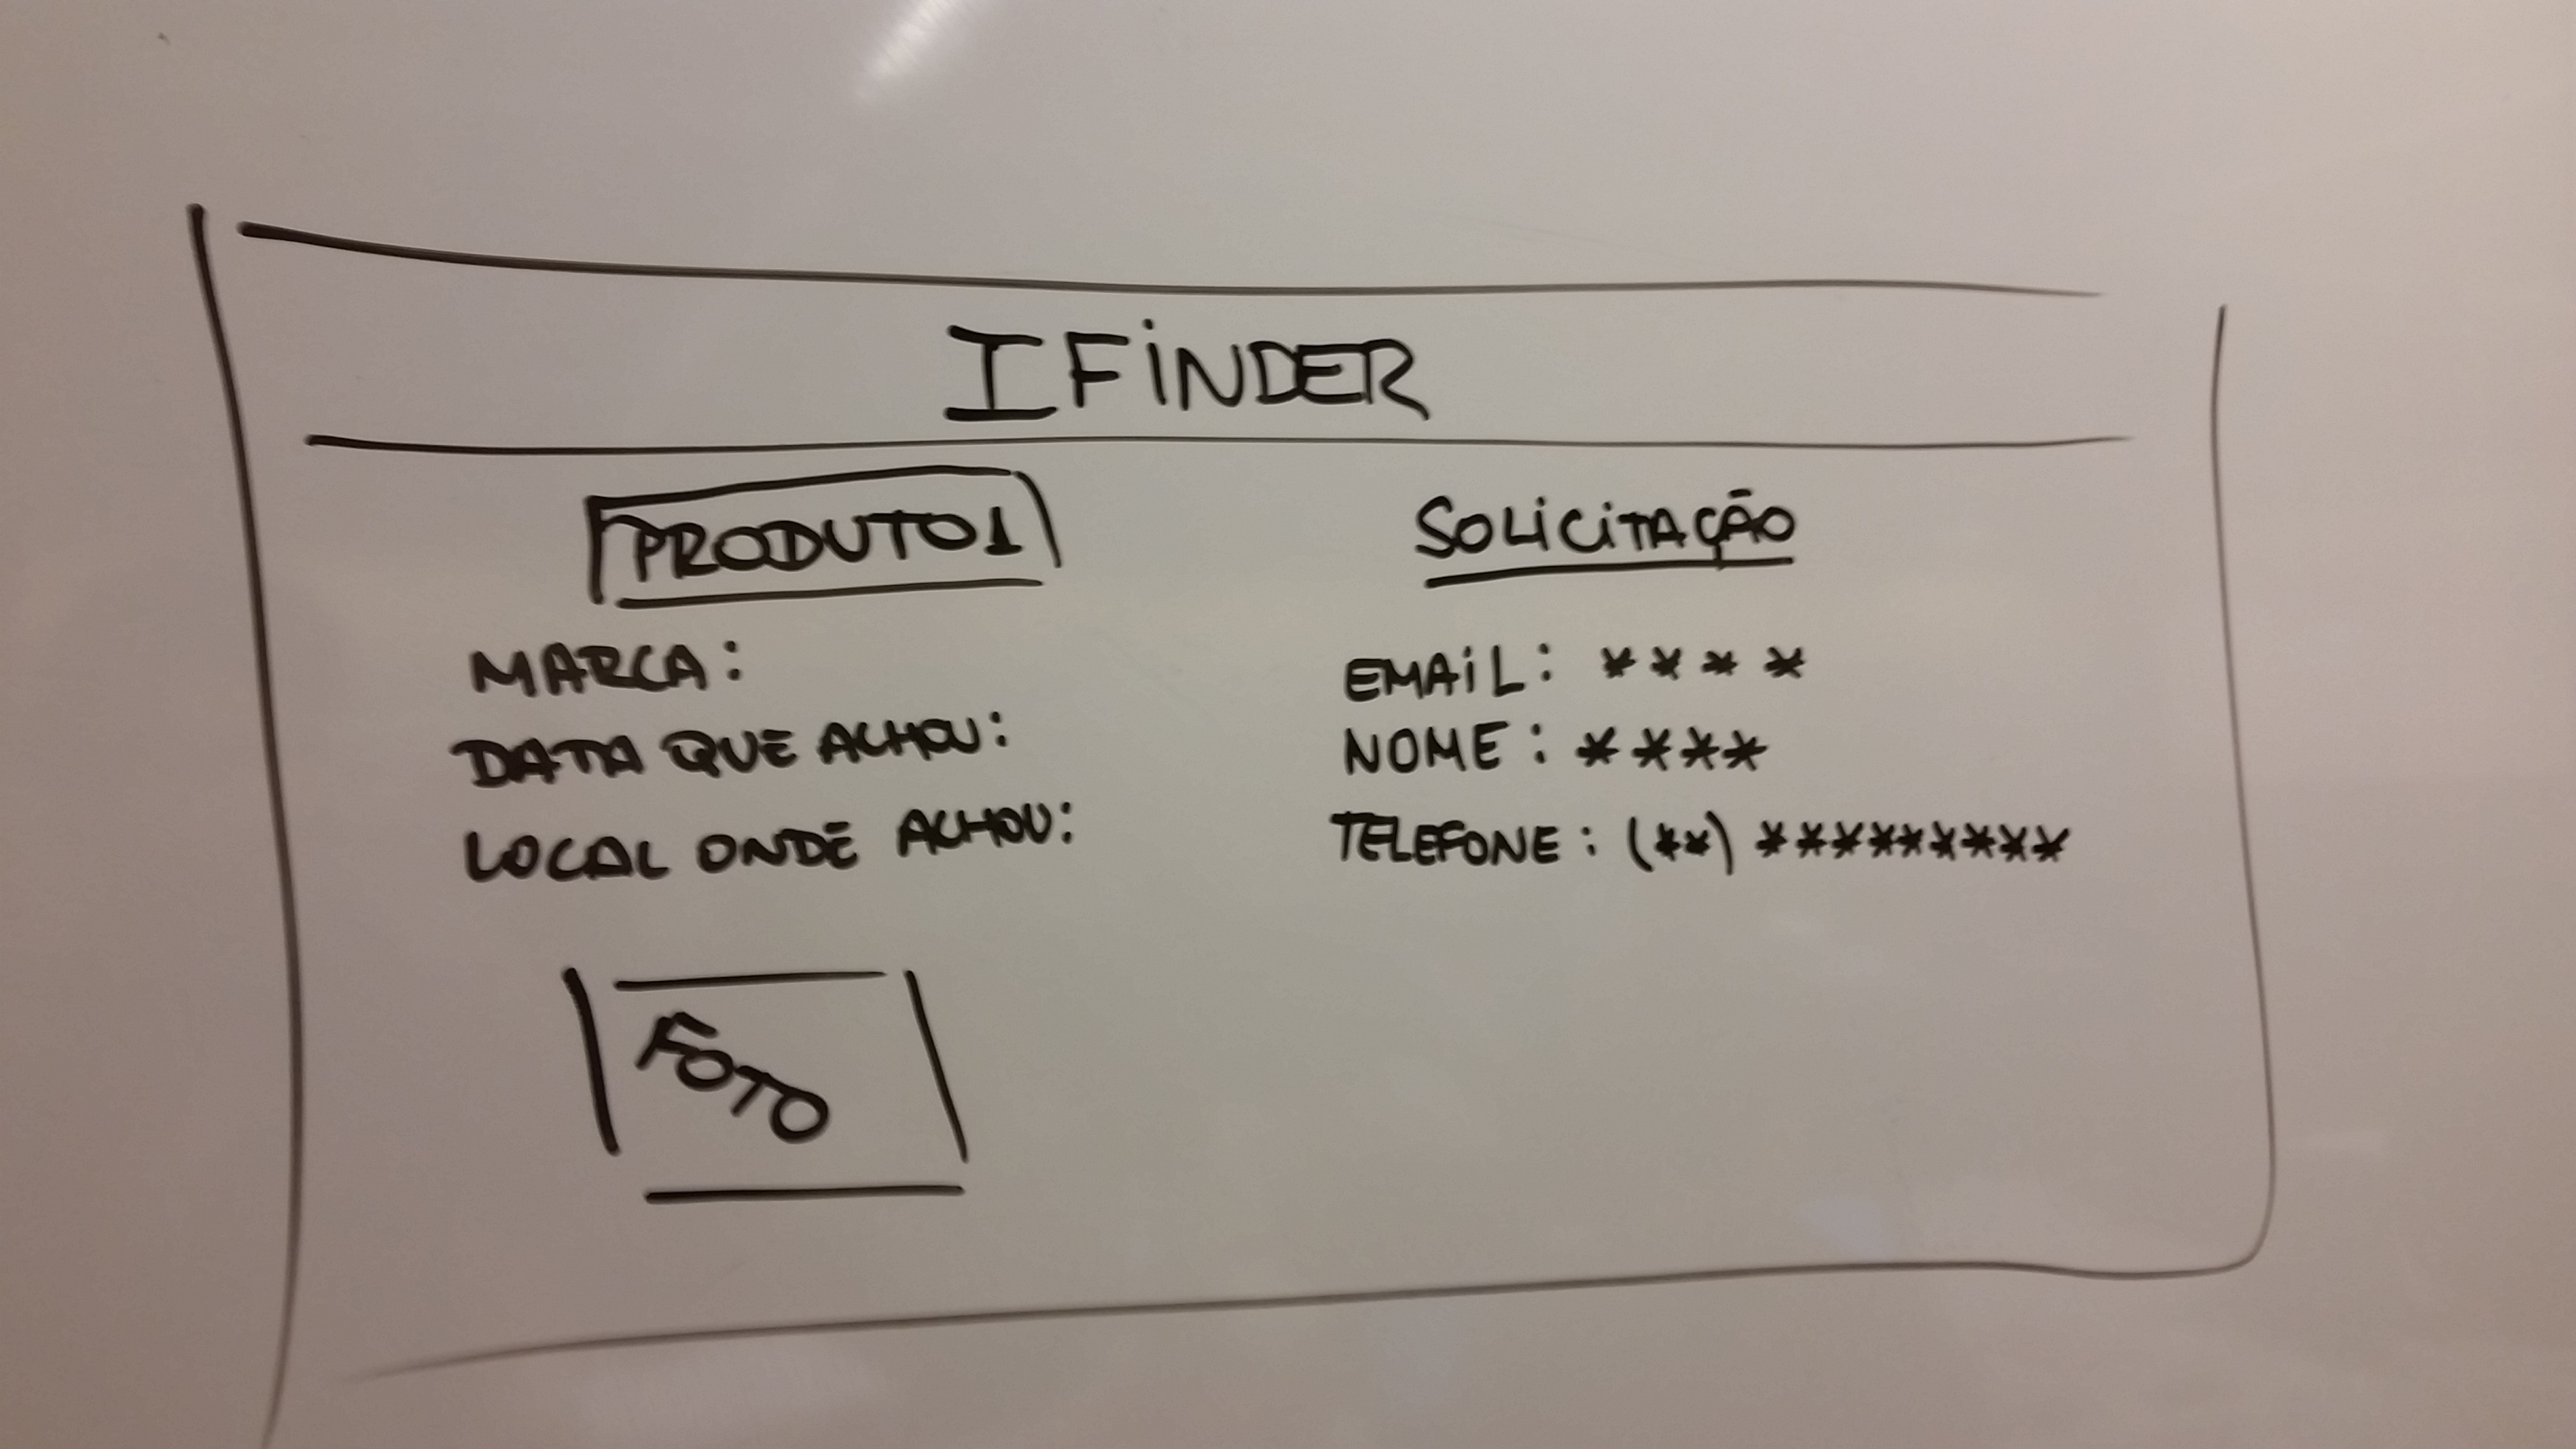 IFINDER
PRODUTO1
MARCA:
DATA QUE ACHOU:
LOCAL ONDE ACHOU:
FOTO
SOLICITAÇÃO
EMAIL: ****
NOME: ****
TELEFONE: (**) *********